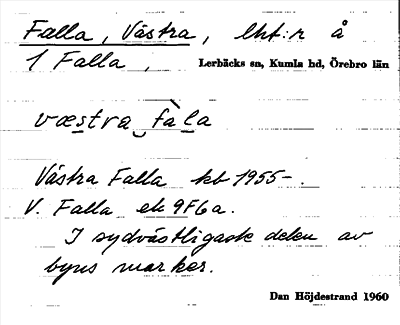 Falla, Västra, lht:r å
1 Falla, Lerbäcks sn, Kumla hd, Örebro län
væstra fàla
Västra Falla kb 1955-.
V. Falla ek 9F6a.
I sydvästligaste delen av
byns marker.
Dan Höjdestrand 1960